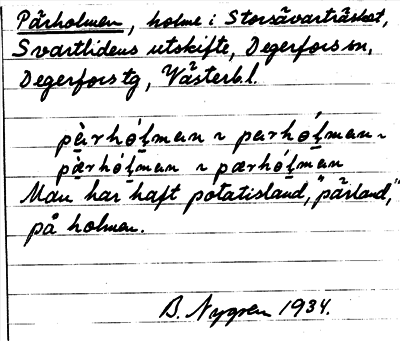 Pärholmen, holme i Storsävarträsket,
Svartlidens utskifte, Degerfors sn,
Degerfors tg, Västerb. l.
pèrhól̥man ~ perhól̥man ~
pæ̀rhól̥man ~ pærhól̥man
Man har haft potatisland, "pärland,"
på holmen.
B. Nygren 1934.